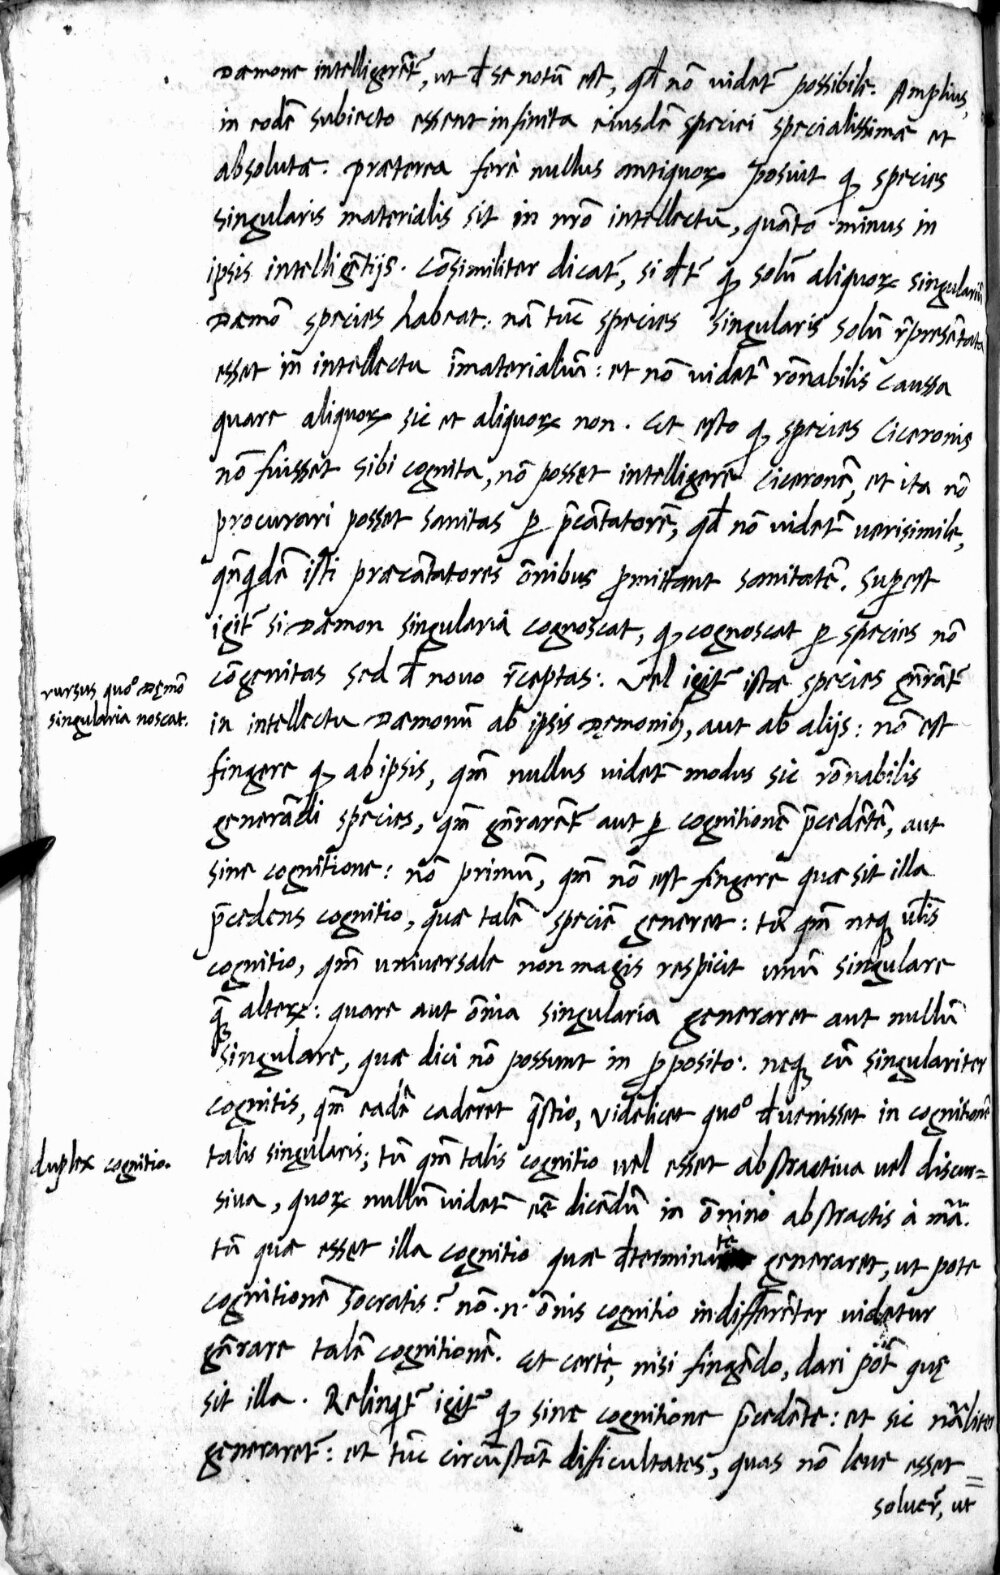 Dæmone intelligerẽt̃, ut đ se notũ est, qđ nõ uidet̃ possibile. Amplius,
in eodẽ subiecto essent infinita eiusdẽ speciei specialissimæ et
absolutæ. Præterea ferè nullus antiquoꝝ posuit ꝙ species
singularis materialis sit in nr̃o intellectu, quãto minus in
ipsis intelligẽtijs. Cõsimiliter dicat̃, si đt̃ ꝙ solũ aliquoꝝ singulariũ
Dæmõ species habeat: nã tũc species singularis solũ r̃presẽtata
esset in intellectu ĩmaterialiũ: et nõ uidet̃ rõnabilis caussa
quare aliquoꝝ sic et aliquoꝝ non. Et esto ꝙ species Ciceronis
nõ fuisset sibi cognita, nõ posset intelligere Ciceronẽ, et ita nõ
procurari posset sanitas ꝑ p̃cãtatorẽ, qđ nõ uidet̃ uerisimile,
qñqdẽ isti præcãtatores õnibus ꝓmittant sanitatẽ. Suꝑest
igit̃ si Dæmon singularia cognoscat, ꝙ cognoscat ꝑ species nõ
cõgenitas sed đ nouo r̃ceptas: Vel igit̃ istæ species gñrãt̃
rursus quo° Dęmõ
singularia noscat.
in intellectu Dæmonũ ab ipsis Dęmonibꝫ, aut ab alijs: nõ est
fingere ꝙ ab ipsis, qm̃ nullus uidet̃ modus sic rõnabilis
generãdi species, qm̃ gñrarẽt̃ aut ꝑ cognitionẽ p̃cedẽtẽ, aut
sine cognitione: nõ primũ, qm̃ nõ est fingere quæ sit illa
p̃cedens cognitio, quæ talẽ speciẽ generet: tũ qm̃ neqꝫ ul̃is
cognitio, qm̃ uniuersale non magis respicit unũ singulare
q̃ꝫ alteꝝ: quare aut õnia singularia generaret aut nullũ
singulare, quæ dici nõ possunt in ꝓposito: neqꝫ cũ singulariter
cognitis, qm̃ eadẽ caderet q̃stio, uidelicet quo° đuenisset in cognitionẽ
duplex cognitio.
talis singularis; tũ qm̃ talis cognitio uel esset abstractiua uel discur=
siua, quoꝝ nullũ uidet̃ eẽ dicẽdũ in õnino abstractis à mã.
tũ quæ esset illa cognitio quæ đterminatè generaret, ut pote
cognitionẽ Socratis? nõ .n. õnis cognitio indifferẽter uidetur
gñrare talẽ cognitionẽ. Et certè, nisi fingẽdo, dari põt quę
sit illa. Relinqt̃ igit̃ ꝙ sine cognitione p̃cedẽte: et sic nãliter
generaret̃: et tũc circũstãt difficultates, quas nõ leue esset
soluer̃, ut